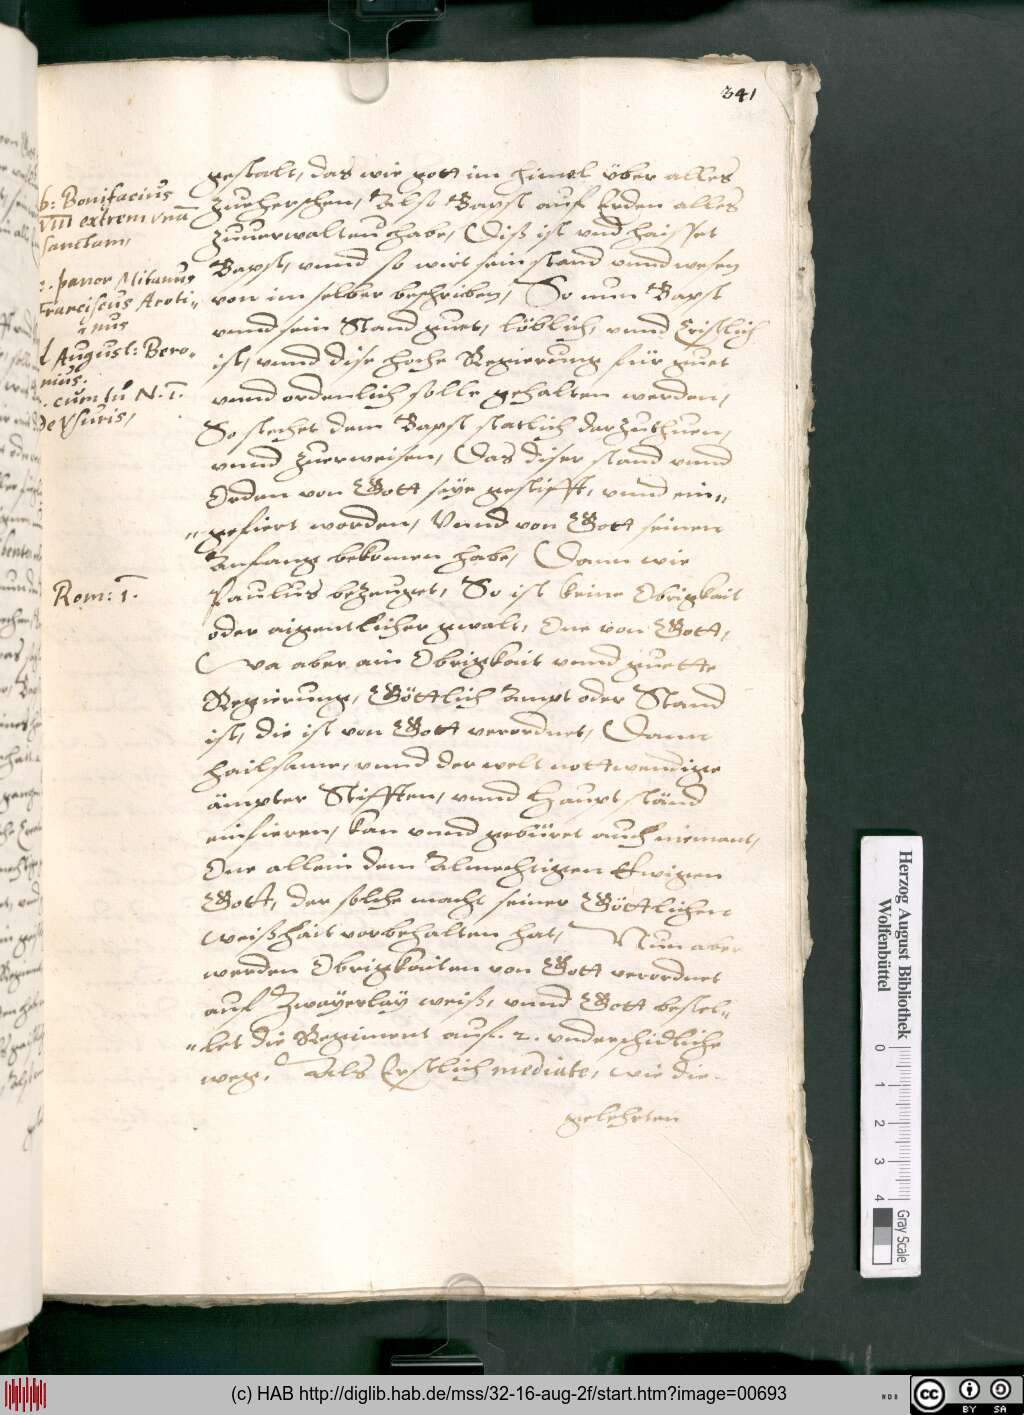 341
gestalt, das wie gott im himel über alles
zuherschen, Also Bapst auf Erden alles
zuuerwalten habe, Diß ist vnd haisset
Bapst, vnnd so wirt sein stand vnnd wesen
von im selber beschriben, So nun Bapst
vnnd sein Stand guet, löblich, vnnd Cristlich
ist, vnnd dise hoche Regierung für guet
vnnd ordenlich solle gehalten werden,
So stehet dem Bapst statlich darzuthuen,
vnnd zuerweisen, Das diser stand vnnd
Orden von Gott seye gestifft, vnnd ein„
„gefiert worden, Vnnd von Gott seinen
Anfang bekomen habe, Dann wie
Paulus bezeuget, So ist keine Obrigkait
oder aigentlicher gwalt, One von Gott,
Wa aber ain Obrigkait vnnd guette
Regierung, Göttlich Ampt oder Stand
ist, die ist von Gott verordnet, Dann
hailsame, vnnd der welt nottwendige
ämpter Stifften, vnnd Haupt ständ
einfieren, kan vnnd gebüret auch niemant,
One allein dem Almechtigen Ewigen
Gott, der solche macht seiner Göttlichen
weißhait vorbehalten hat, Nun aber
werden Obrigkaiten von Gott verordnet
auf Zwayerlay weiß, vnnd Gott bestel„
„let die Regiment auf .2. vnderschidliche
weg, Als Erstlich mediate, wie die
gelehrten
b: Bonifacius
VIII extrem vnā
sanctam,
panor Mitanus
Franciscus Areti„
nus
d August: Bero„
nius.
cum tu N. 1.
de Vsuris,
Rom: 1.
Herzog August Bibliothek
Wolfenbüttel
0 1 2 3 4
Gray Scale
(c) HAB http://diglib.hab.de/mss/32-16-aug-2f/start.htm?image=00693
WDB
cc BY SA